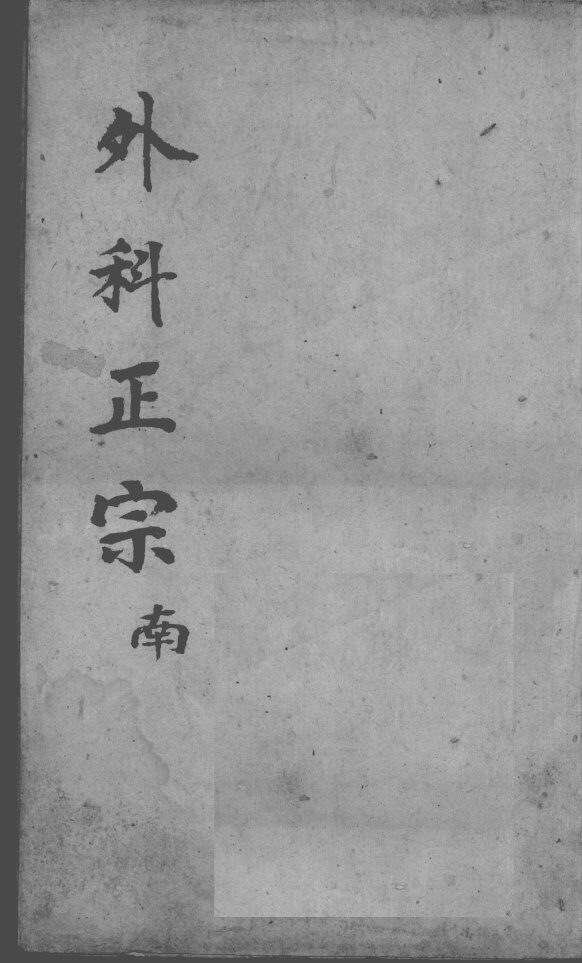 外科正宗 南